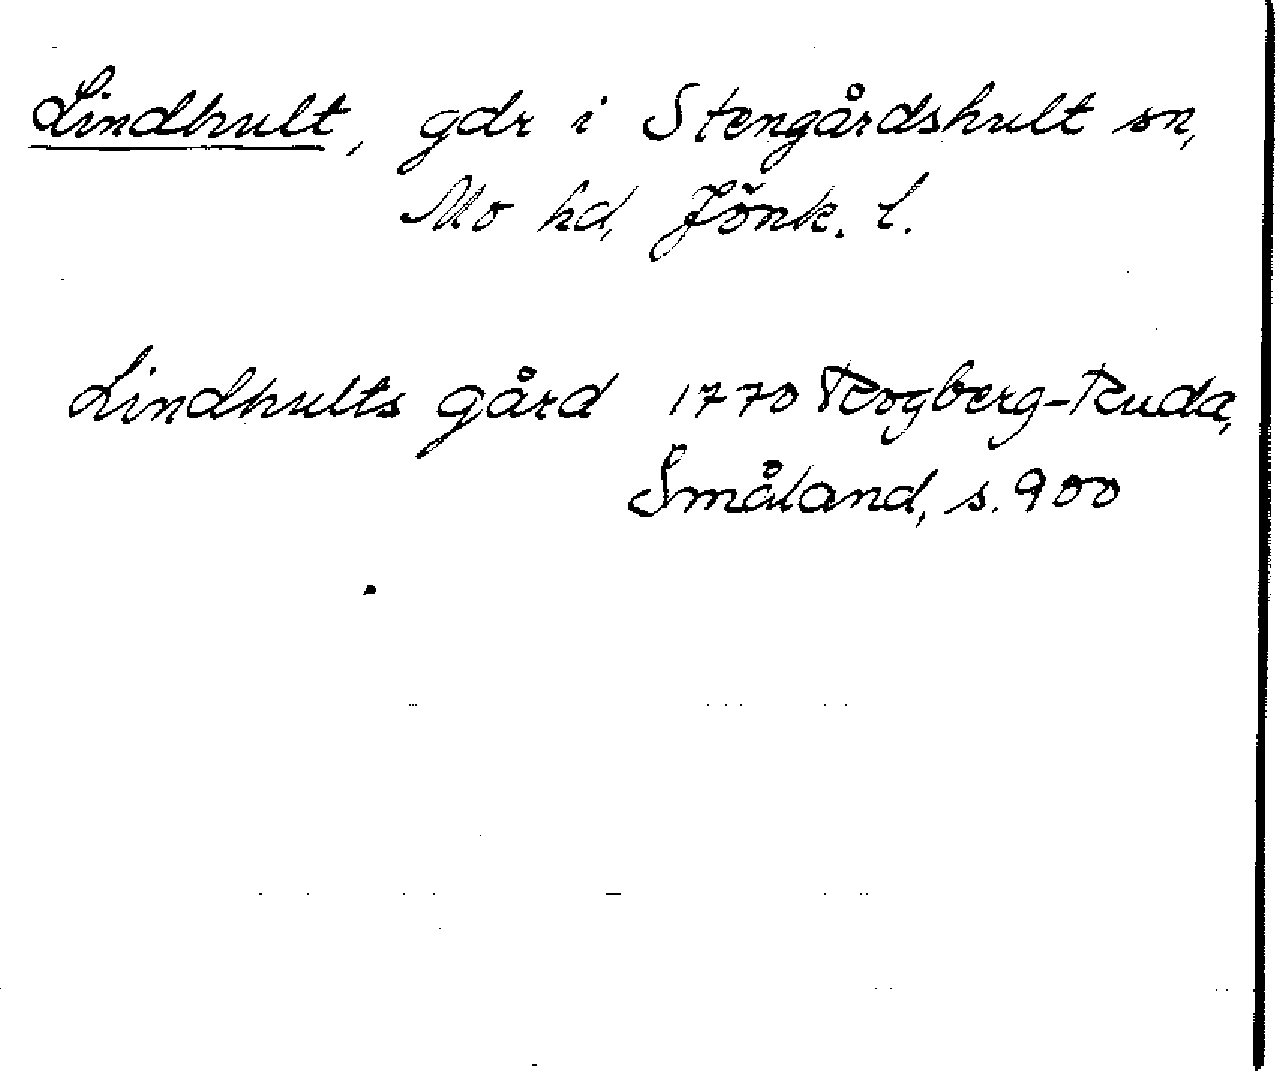 Lindhult, gdr i Stengårdshult sn,
Mo hd, Jönk. l.
Lindhults gård 1770 Rogberg-Ruda,
Småland, s. 900